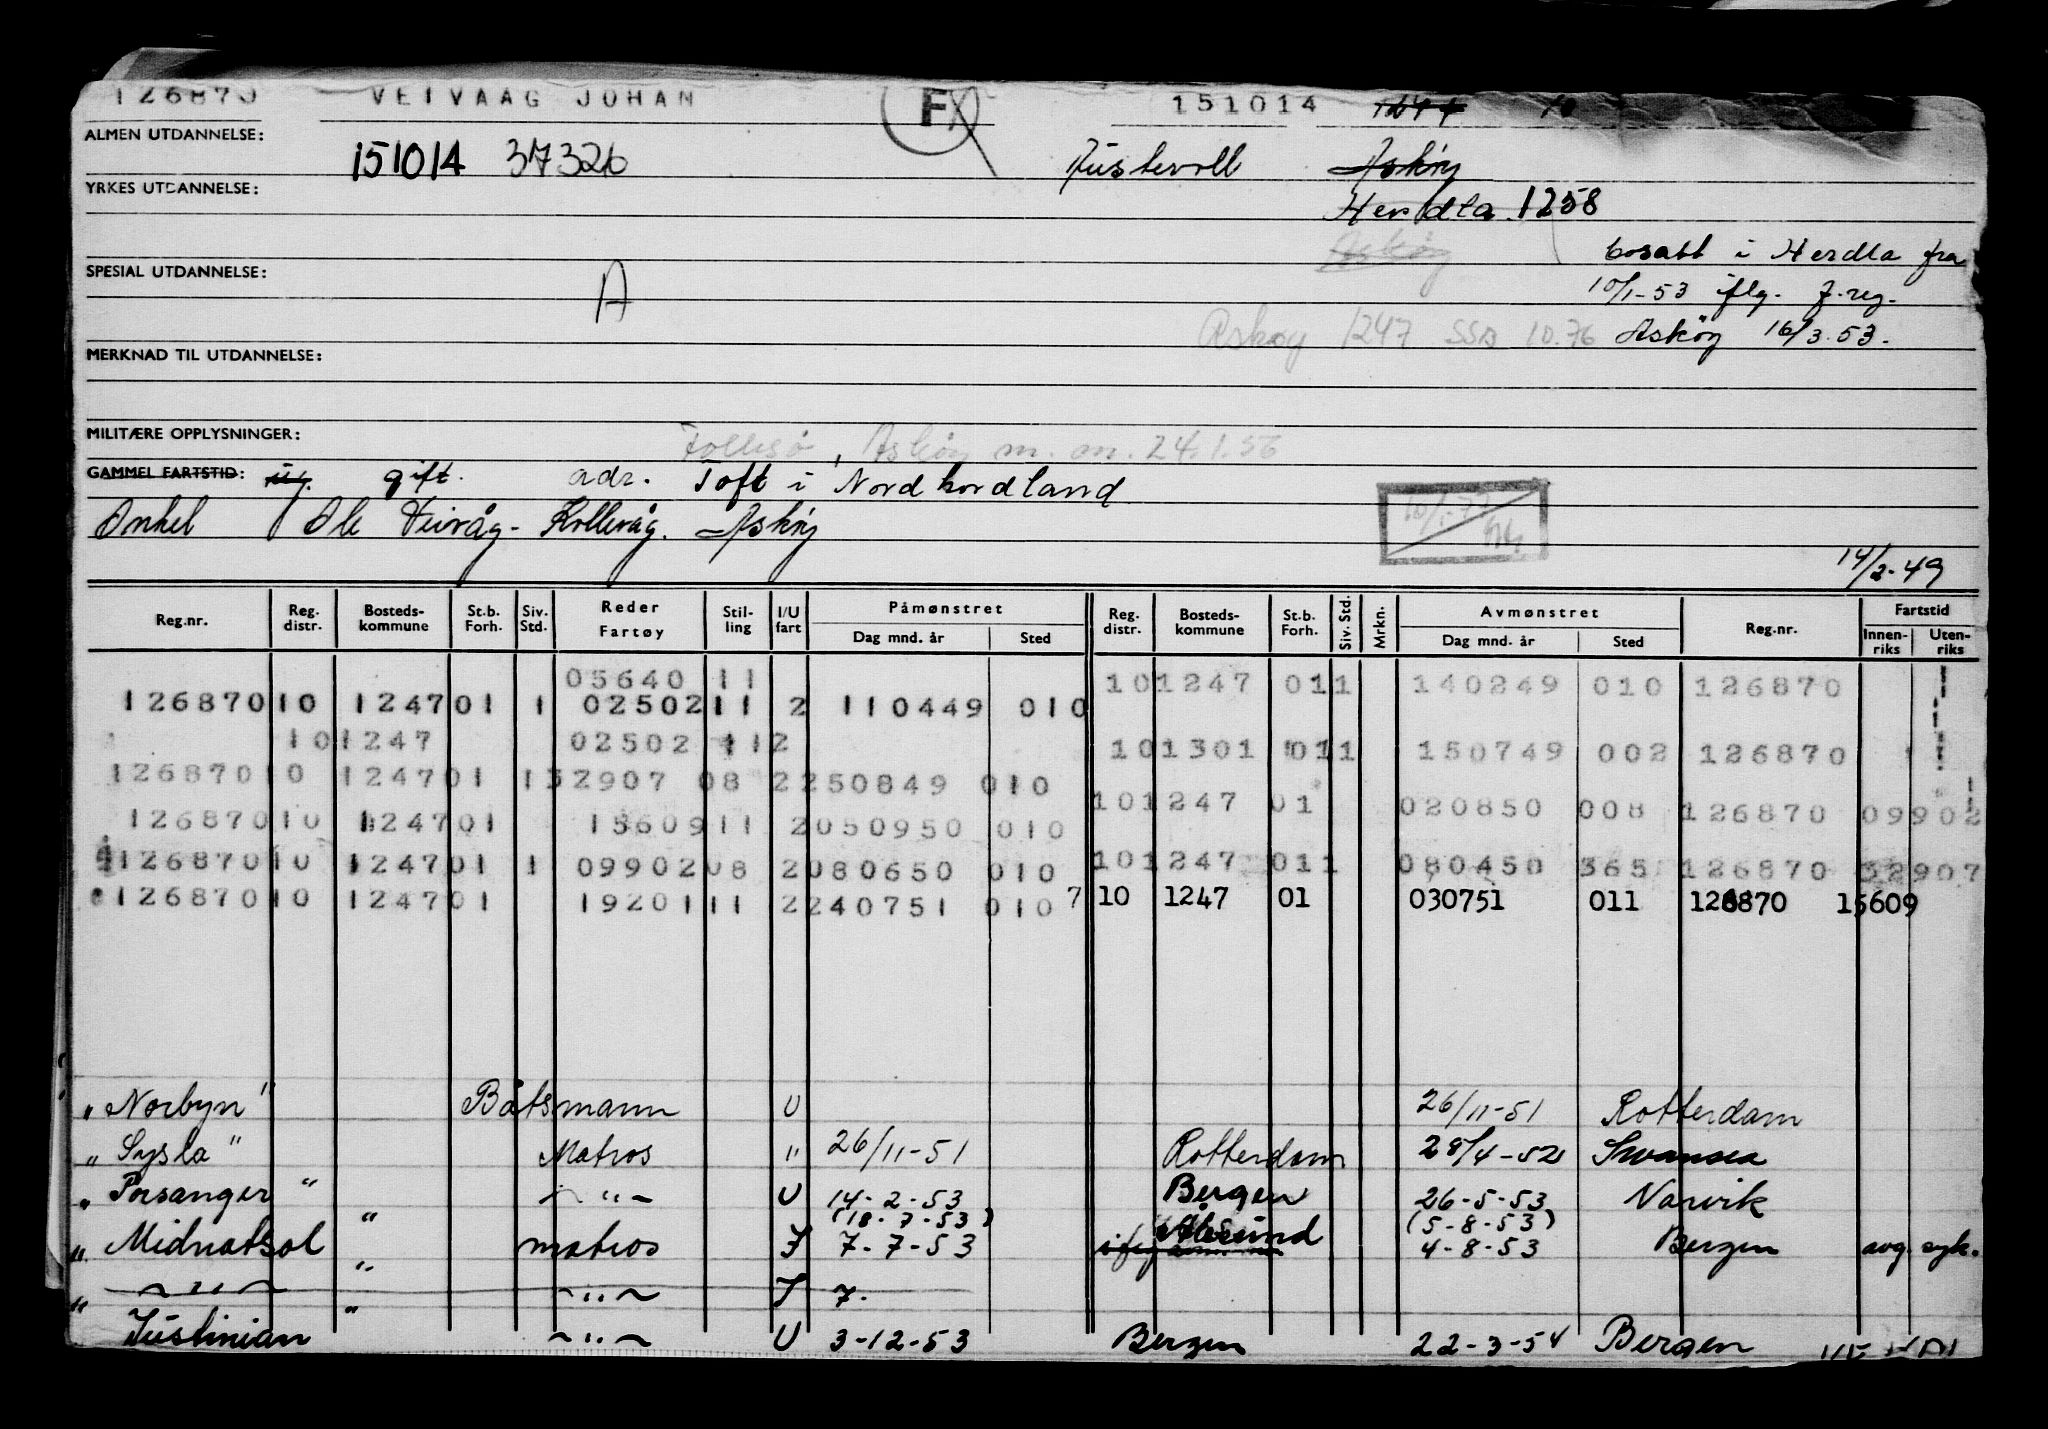 126870 VEIVAAG JOHAN F 151014
ALMEN UTDANNELSE:
151014 37326 Austevoll Askøy
YRKES UTDANNELSE:
Herdla 1258
Askøy bosatt i Herdla fra
SPESIAL UTDANNELSE: A
10/1-53 iflg. f.reg.
Askøy 1247 SSB 10.76 Askøy 16/3.53.
MERKNAD TIL UTDANNELSE:
MILITÆRE OPPLYSNINGER:
Askøy m.m. 24.1.56
GAMMEL FARTSTID: ug. gift. adr. Toft i Nordhordland
Onkel Ole Veivåg - Kollevåg. Askøy
14/2-49
Reg.nr. Reg. distr. Bosteds-kommune St.b. Forh. Siv. Std. Reder Fartøy Stil-ling I/U fart Påmønstret Dag mnd. år Sted Reg. distr. Bosteds-kommune St.b. Forh. Siv. Std. Mrkn. Avmønstret Dag mnd. år Sted Reg.nr. Fartstid Innen-riks Uten-riks
05640 11 10 1247 01 1 140249 010 126870
126870 10 1247 01 1 02502 11 2 110449 010
10 1247 02502 11 2 10 1301 01 1 150749 002 126870
126870 10 1247 01 1 32907 08 2 250849 010
10 1247 01 020850 008 126870 09902
126870 10 1247 01 15609 11 2 050950 010
126870 10 1247 01 1 09902 08 2 080650 010 10 1247 01 1 080450 365 126870 32907
126870 10 1247 01 19201 11 2 240751 010 7 10 1247 01 030751 011 126870 15609
"Norbyn" Båtsmann U 26/11-51 Rotterdam
"Sysla" Matros " 26/11-51 Rotterdam 28/4-52 Swansea
"Porsanger" " U 14-2-53 Bergen 26-5-53 Narvik
(18-7-53) (5-8-53)
"Midnatsol" matros I 7-7-53 Ålesund 4-8-53 Bergen avg. syk.
" " " I 7.
"Justinian" " U 3-12-53 Bergen 22-3-54 Bergen